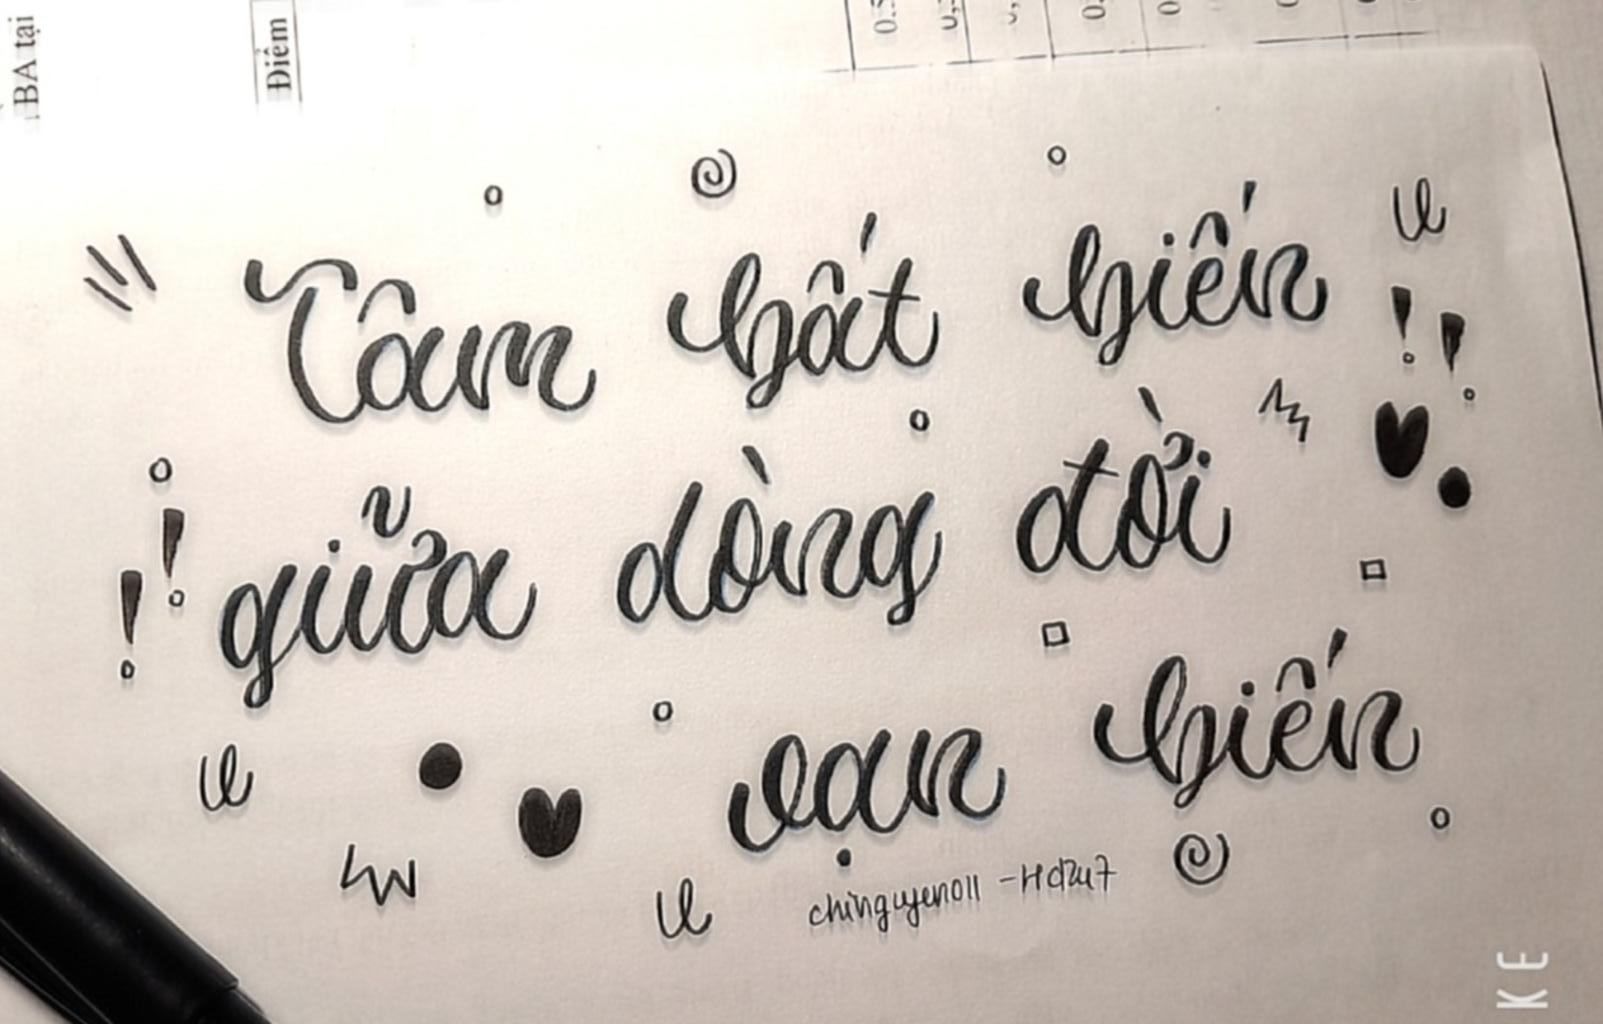 BA tại
Điểm
Tâm bất biến
giữa dòng đời
vạn biến
chinguyen011 - Hd247
KE